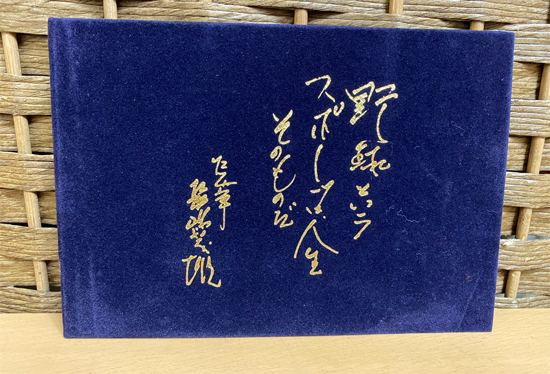 野球という
スポーツは人生
そのものだ
巨人軍
長嶋茂雄